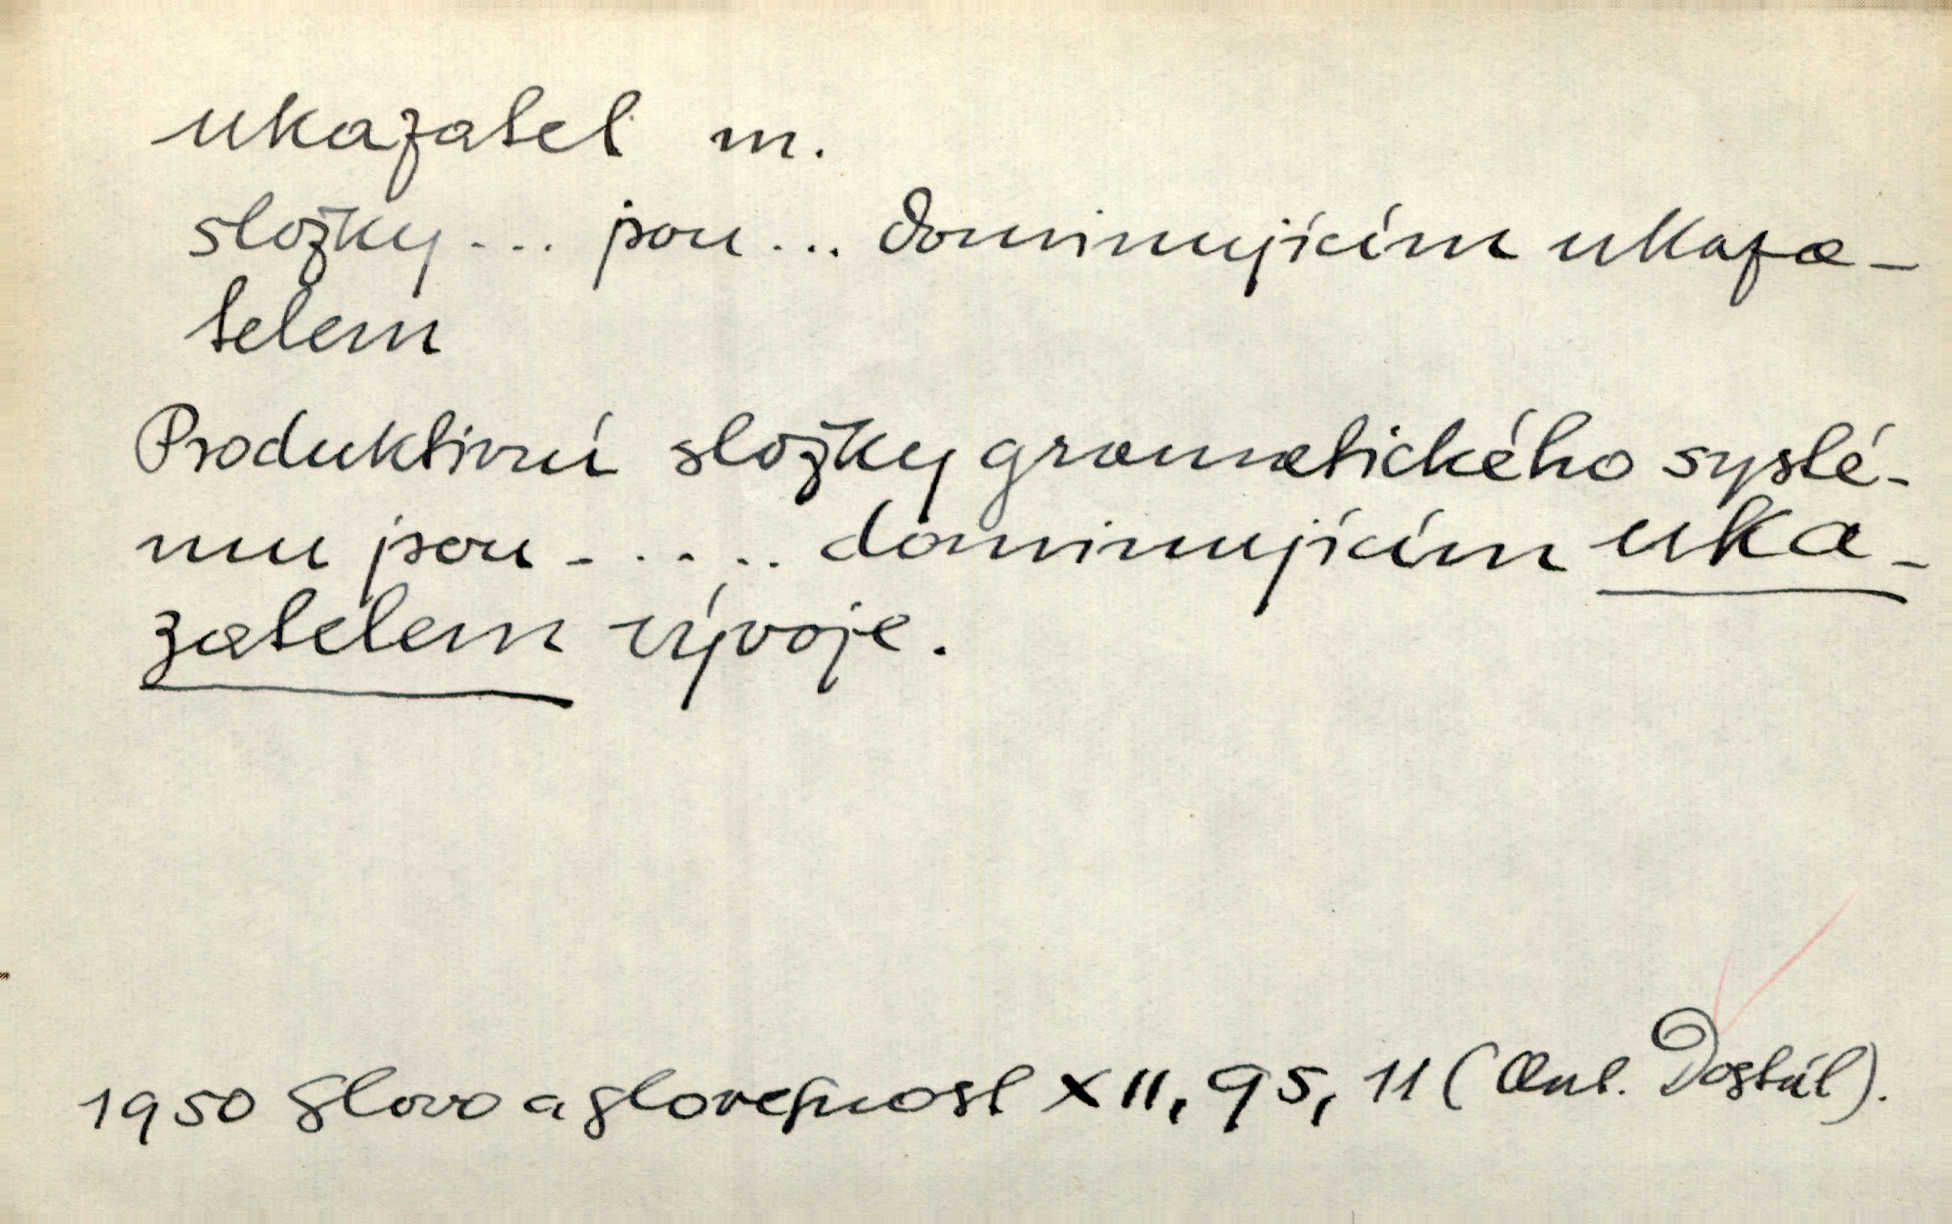 ukazatel m.
složky... jsou... dominujícím ukaza-
telem
Produktivní složky gramatického systé-
mu jsou - . . . . dominujícím uka-
zatelem vývoje.
1950 Slovo a slovesnost XII, 95, 11 (Ant. Dostál).